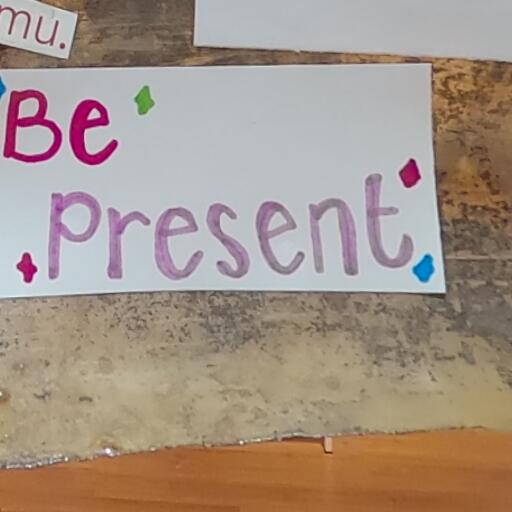 mu.
Be
present